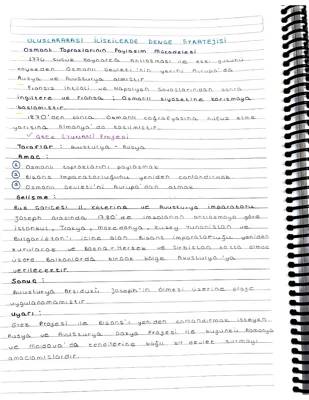 ULUSLARARASI İLİŞKİLERDE DENGE STRATEJİSİ
Osmanlı Topraklarının Paylaşım Mücadelesi
1774 Küçük Kaynarca Antlaşması ile eski gücünü
kaybeden Osmanlı Devleti'nin yerini Avrupa'da
Rusya ve Avusturya almıştır
Fransız İhtilali ve Napolyon Savaşlarından sonra
İngiltere ve Fransa; Osmanlı siyasetine karışmaya
başlamıştır.
1870'den sonra Osmanlı coğrafyasına nüfuz etme
yarışına Almanya'da katılmıştır.
Grek Projesi
Taraflar: Avusturya - Rusya
Amaç:
1 Osmanlı topraklarını paylaşmak
2 Bizans İmparatorluğu'nu yeniden canlandırmak
3 Osmanlı Devleti'ni Avrupa'dan atmak
Gelişme:
Rus Çariçesi II. Katerina ve Avusturya İmparatoru
Joseph arasında 1780'de imzalanan antlaşmaya göre
İstanbul, Trakya, Makedonya, Kuzey Yunanistan ve
Bulgaristan'ı içine alan Bizans İmparatorluğu yeniden
kurulacak ve Bosna Hersek ve Sırbistan başta olmak
üzere Balkanlarda birçok bölge Avusturya'ya
verilecektir.
Sonuç:
Avusturya Arşidükü Joseph'in ölmesi üzerine proje
uygulanamamıştır.
Uyarı:
Grek Projesi ile Bizans'ı yeniden canlandırmak isteyen
Rusya ve Avusturya Dakya Projesi ile bugünkü Romanya
ve Moldova'da kendilerine bağlı bir devlet kurmayı
amaçlamışlardır.